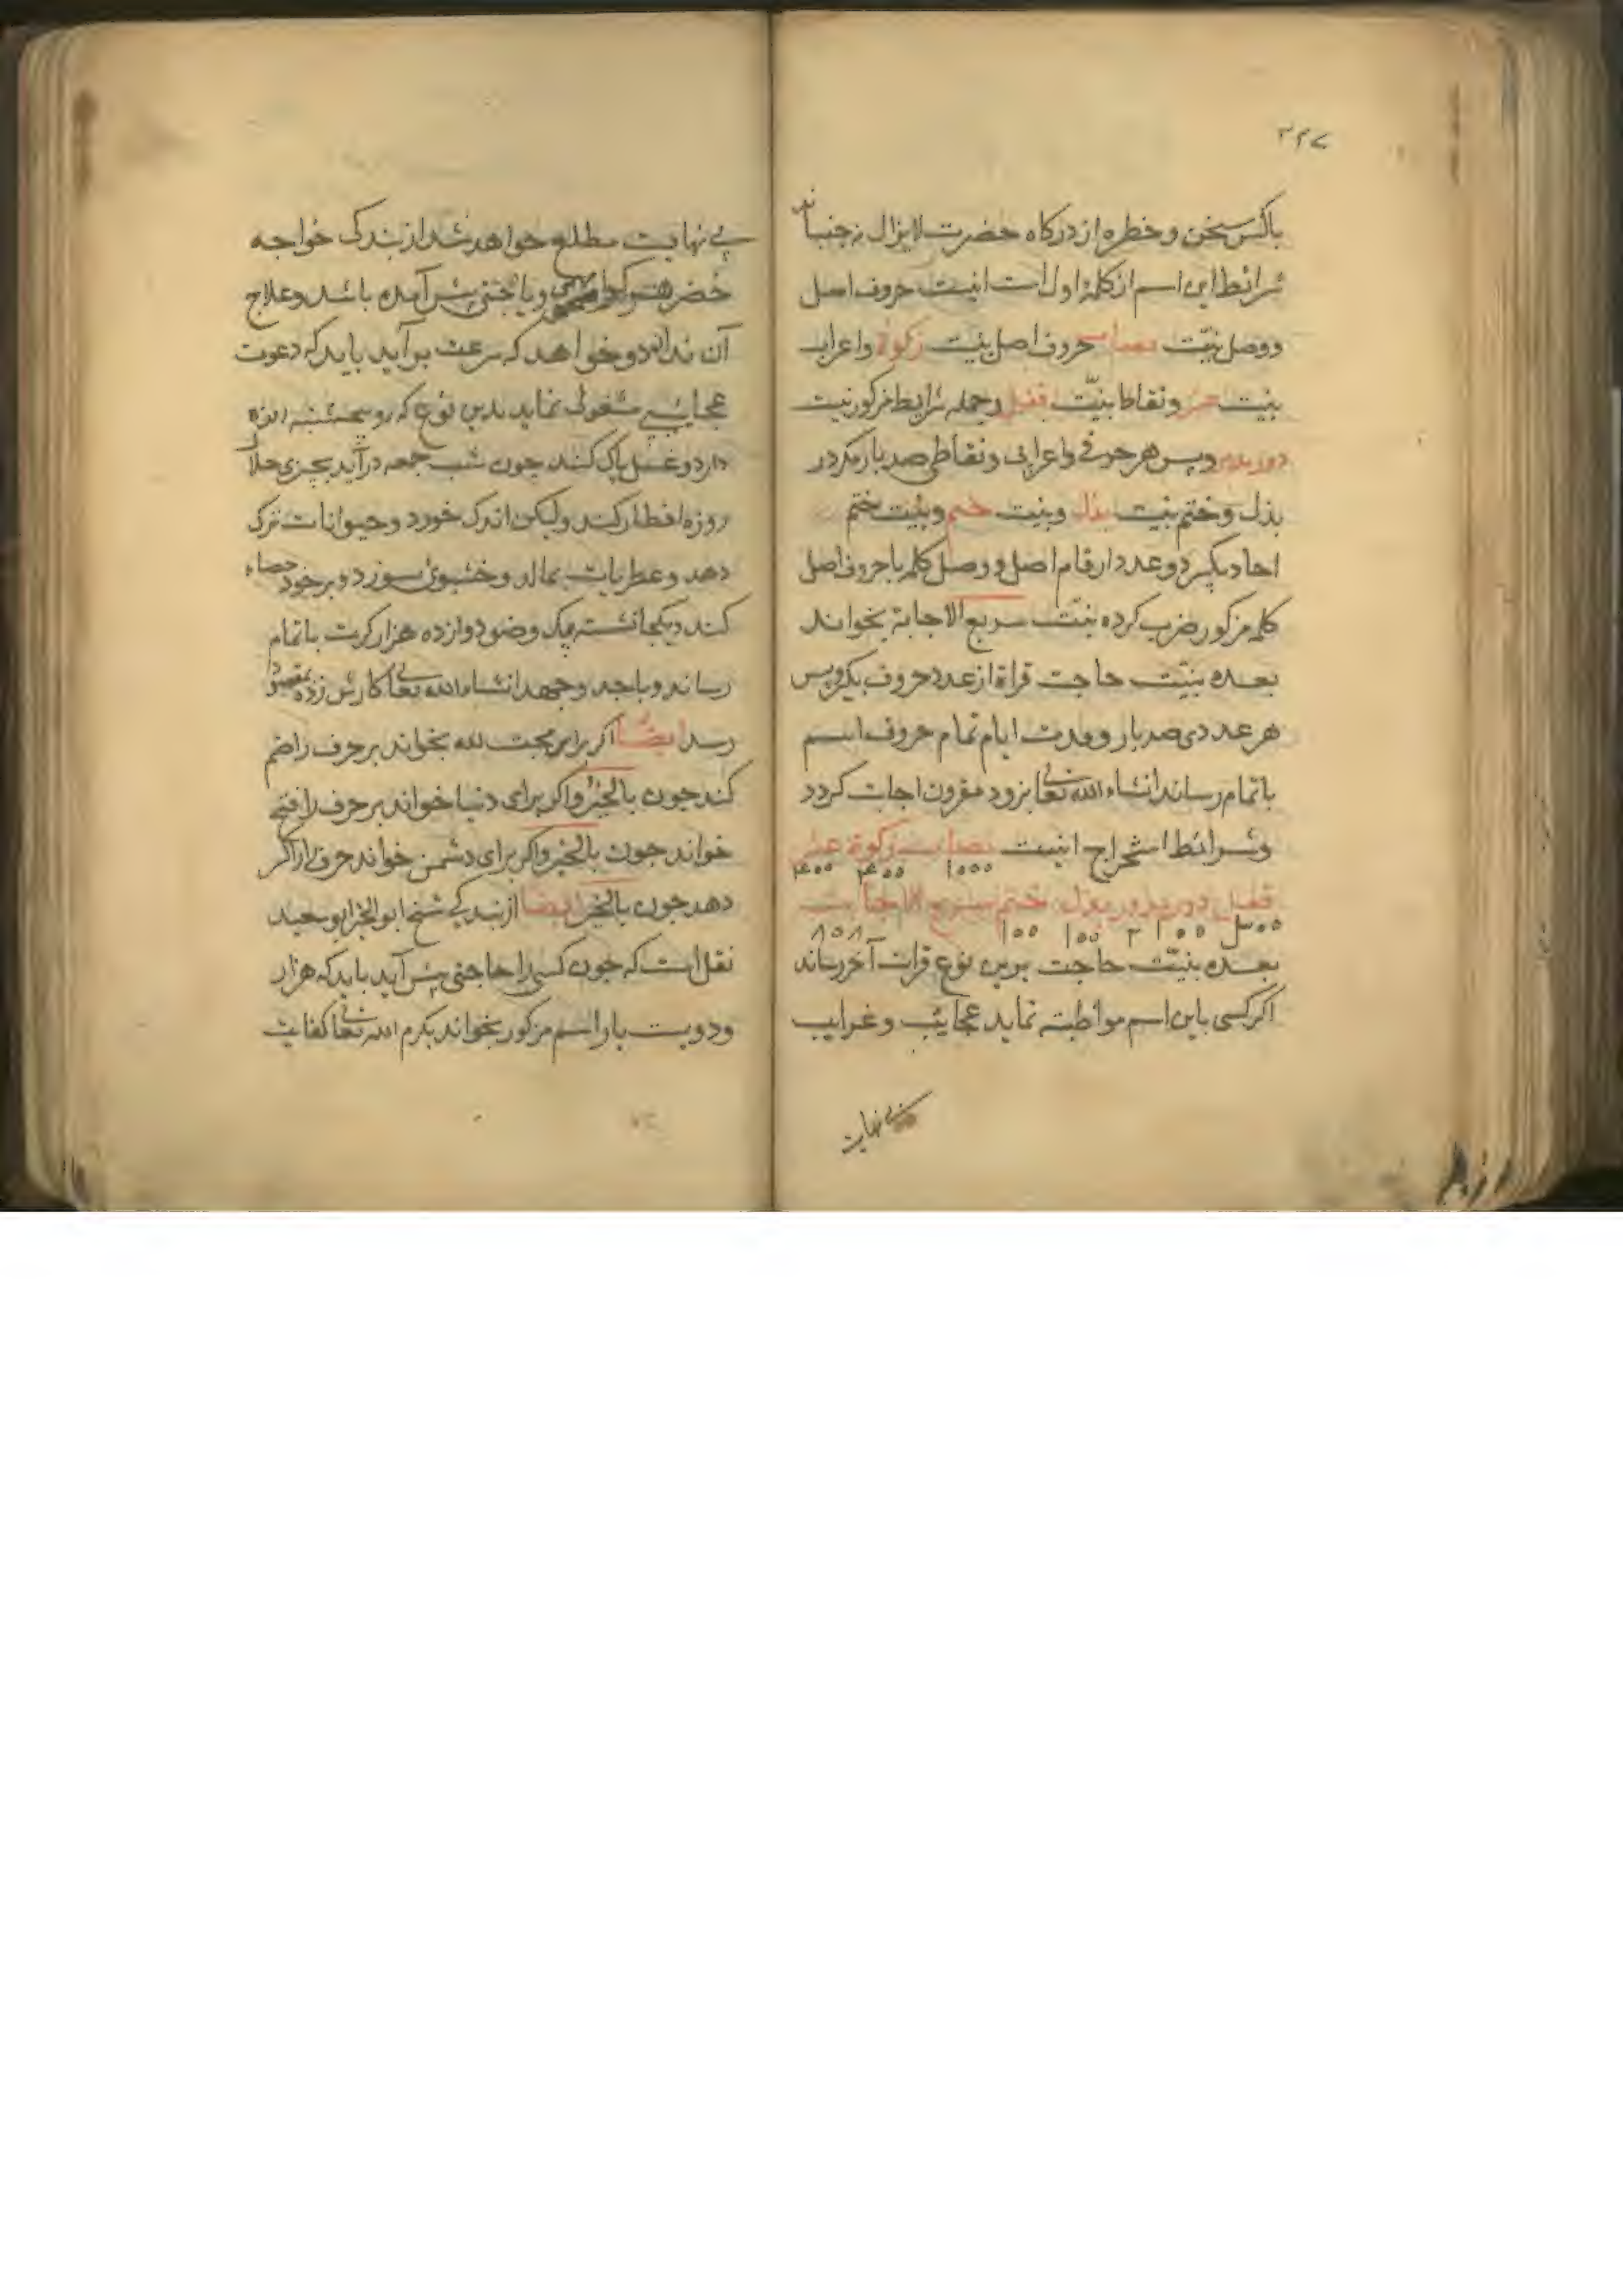 ۳۴۷
باکس سخن و خطره از درکاه حضرت لایزال نه جنباند
شرائط این اسم از کلمهٔ اول است اینست حروف اصل
و وصل بنیّت نصاب حروف اصل بنیت زکوة واعراب
بنیت عشر ونقاط بنیّت قفل وجمله شرایط مزکور بنیت
دور مدور وپس هر حرفی واعرابی ونقاطی صد بار مکرر در
بذل وختم بنیت بذل وبنیت ختم وبنیت ختم
احاد بکیرد وعدد ارقام اصل و وصل کلمه باحروف اصل
کلمه مزکور ضرب کرده بنیّت سریع الاجابة بخواند
بعده بنیّت حاجت قراة از عدد حروف بکیر وپس
هر عددی صد بار ومدت ایام تمام حروف اسم
باتمام رساند انشاء الله تعالی بزود مقرون اجابت کردد
وشرائط استخراج اینست نصاب زکوة عشر
۱۰۰۰ ۴۰۰ ۴۰۰
قفل دور مدور بذل ختم سریع الاجابت
۱۰۰ ۱۰۰ ۸۰۸
بعده بنیّت حاجت برین نوع قرات آخر رساند
اکر کسی باین اسم مواظبته نماید عجایٔب وغرایب
بی نهایت
بی نهایت مطلع خواهد شد از بندکی خواجه
خضر هر کرا مهمی ویا جنی پیش آمده باشد وعلاج
آن نداند وخواهد که سرعت برآید باید که دعوت
عجایٔبی مشغولی نماید بدین نوع که روز پنجشنبه روزه
دارد وغسل پاک کند چون شب جمعه درآید بچیزی حلال
روزه افطار کند ولیکن اندک خورد وحیوانات ترک
دهد وعطریات بمالد وخشبوی سوزد وبرخود حصار
کند دیکجا نشسته بیک وضو دوازده هزار کرت باتمام
رساند وباجد وجهد انشاء الله تعالی کارش زود بمقصود
رسد ایضًا اکر برای محبت لله بخواند بر حرف راضم
کند جون بالخیرُ واکر برای دنیا خواند بر حرف را فتح
خواند جون بالخیرَ واکر برای دشمن خواند حرف را کسر
دهد جون بالخیرِ ایضًا از بندکی شیخ ابو الخیر ابو سعید
نقل است که جون کسی را حاجتی پیش آید باید که هزار
ودویست بار اسم مزکور بخواند بکرم الله تعالی کفایت